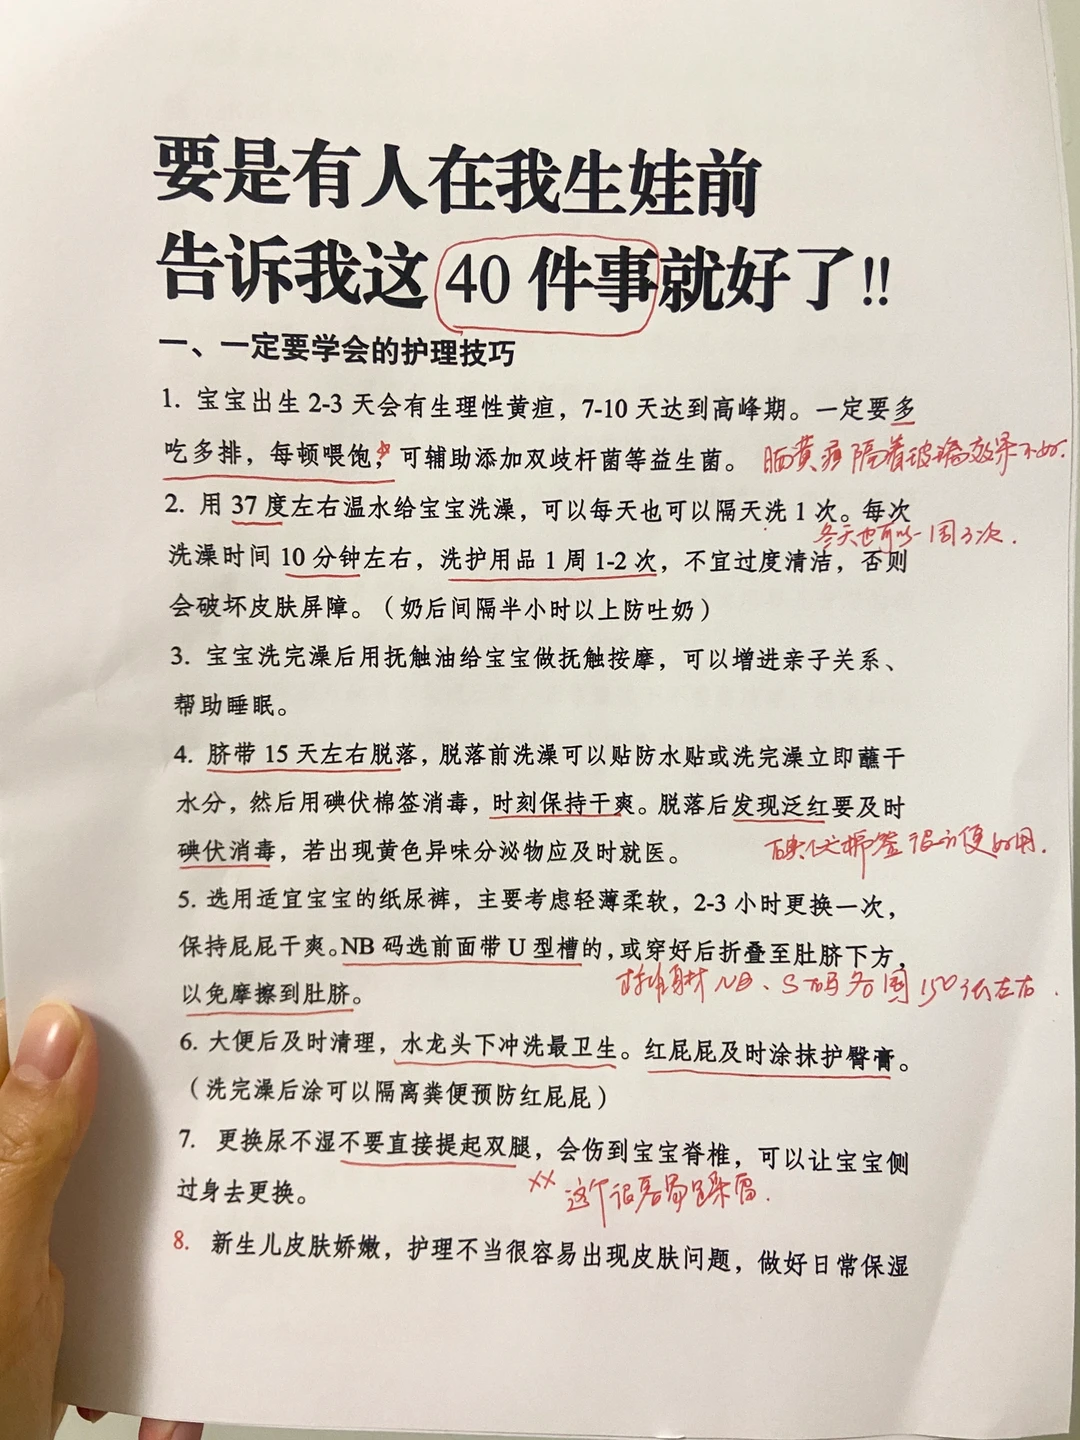 要是有人在我生娃前
告诉我这40件事就好了!!
一、一定要学会的护理技巧
1. 宝宝出生2-3天会有生理性黄疸，7-10天达到高峰期。一定要多
吃多排，每顿喂饱，可辅助添加双歧杆菌等益生菌。
晒黄疸隔着玻璃效果不好.
2. 用37度左右温水给宝宝洗澡，可以每天也可以隔天洗1次。每次
冬天也可以一周3次.
洗澡时间10分钟左右，洗护用品1周1-2次，不宜过度清洁，否则
会破坏皮肤屏障。（奶后间隔半小时以上防吐奶）
3. 宝宝洗完澡后用抚触油给宝宝做抚触按摩，可以增进亲子关系、
帮助睡眠。
4. 脐带15天左右脱落，脱落前洗澡可以贴防水贴或洗完澡立即蘸干
水分，然后用碘伏棉签消毒，时刻保持干爽。脱落后发现泛红要及时
碘伏消毒，若出现黄色异味分泌物应及时就医。
碘伏棉签很方便好用.
5. 选用适宜宝宝的纸尿裤，主要考虑轻薄柔软，2-3小时更换一次，
保持屁屁干爽。NB码选前面带U型槽的，或穿好后折叠至肚脐下方，
以免摩擦到肚脐。
NB、S码各囤150张左右.
6. 大便后及时清理，水龙头下冲洗最卫生。红屁屁及时涂抹护臀膏。
（洗完澡后涂可以隔离粪便预防红屁屁）
7. 更换尿不湿不要直接提起双腿，会伤到宝宝脊椎，可以让宝宝侧
过身去更换。
xx 这个很容易踩雷.
8. 新生儿皮肤娇嫩，护理不当很容易出现皮肤问题，做好日常保湿